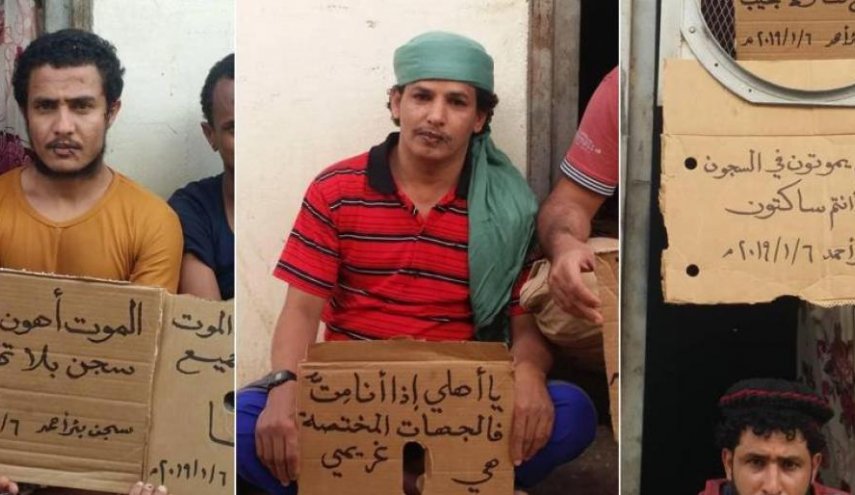 الموت أهون
سجن بلا
سجن بئر أحمد ٦/
الموت
٢٠١٩/١/٦م
يا أهلي إذا أنا مت
فالجهات المختصة
هي غريمي
أحمد ٢٠١٩/١/٦م
يموتون في السجون
انتم ساكتون
أحمد ٢٠١٩/١/٦م